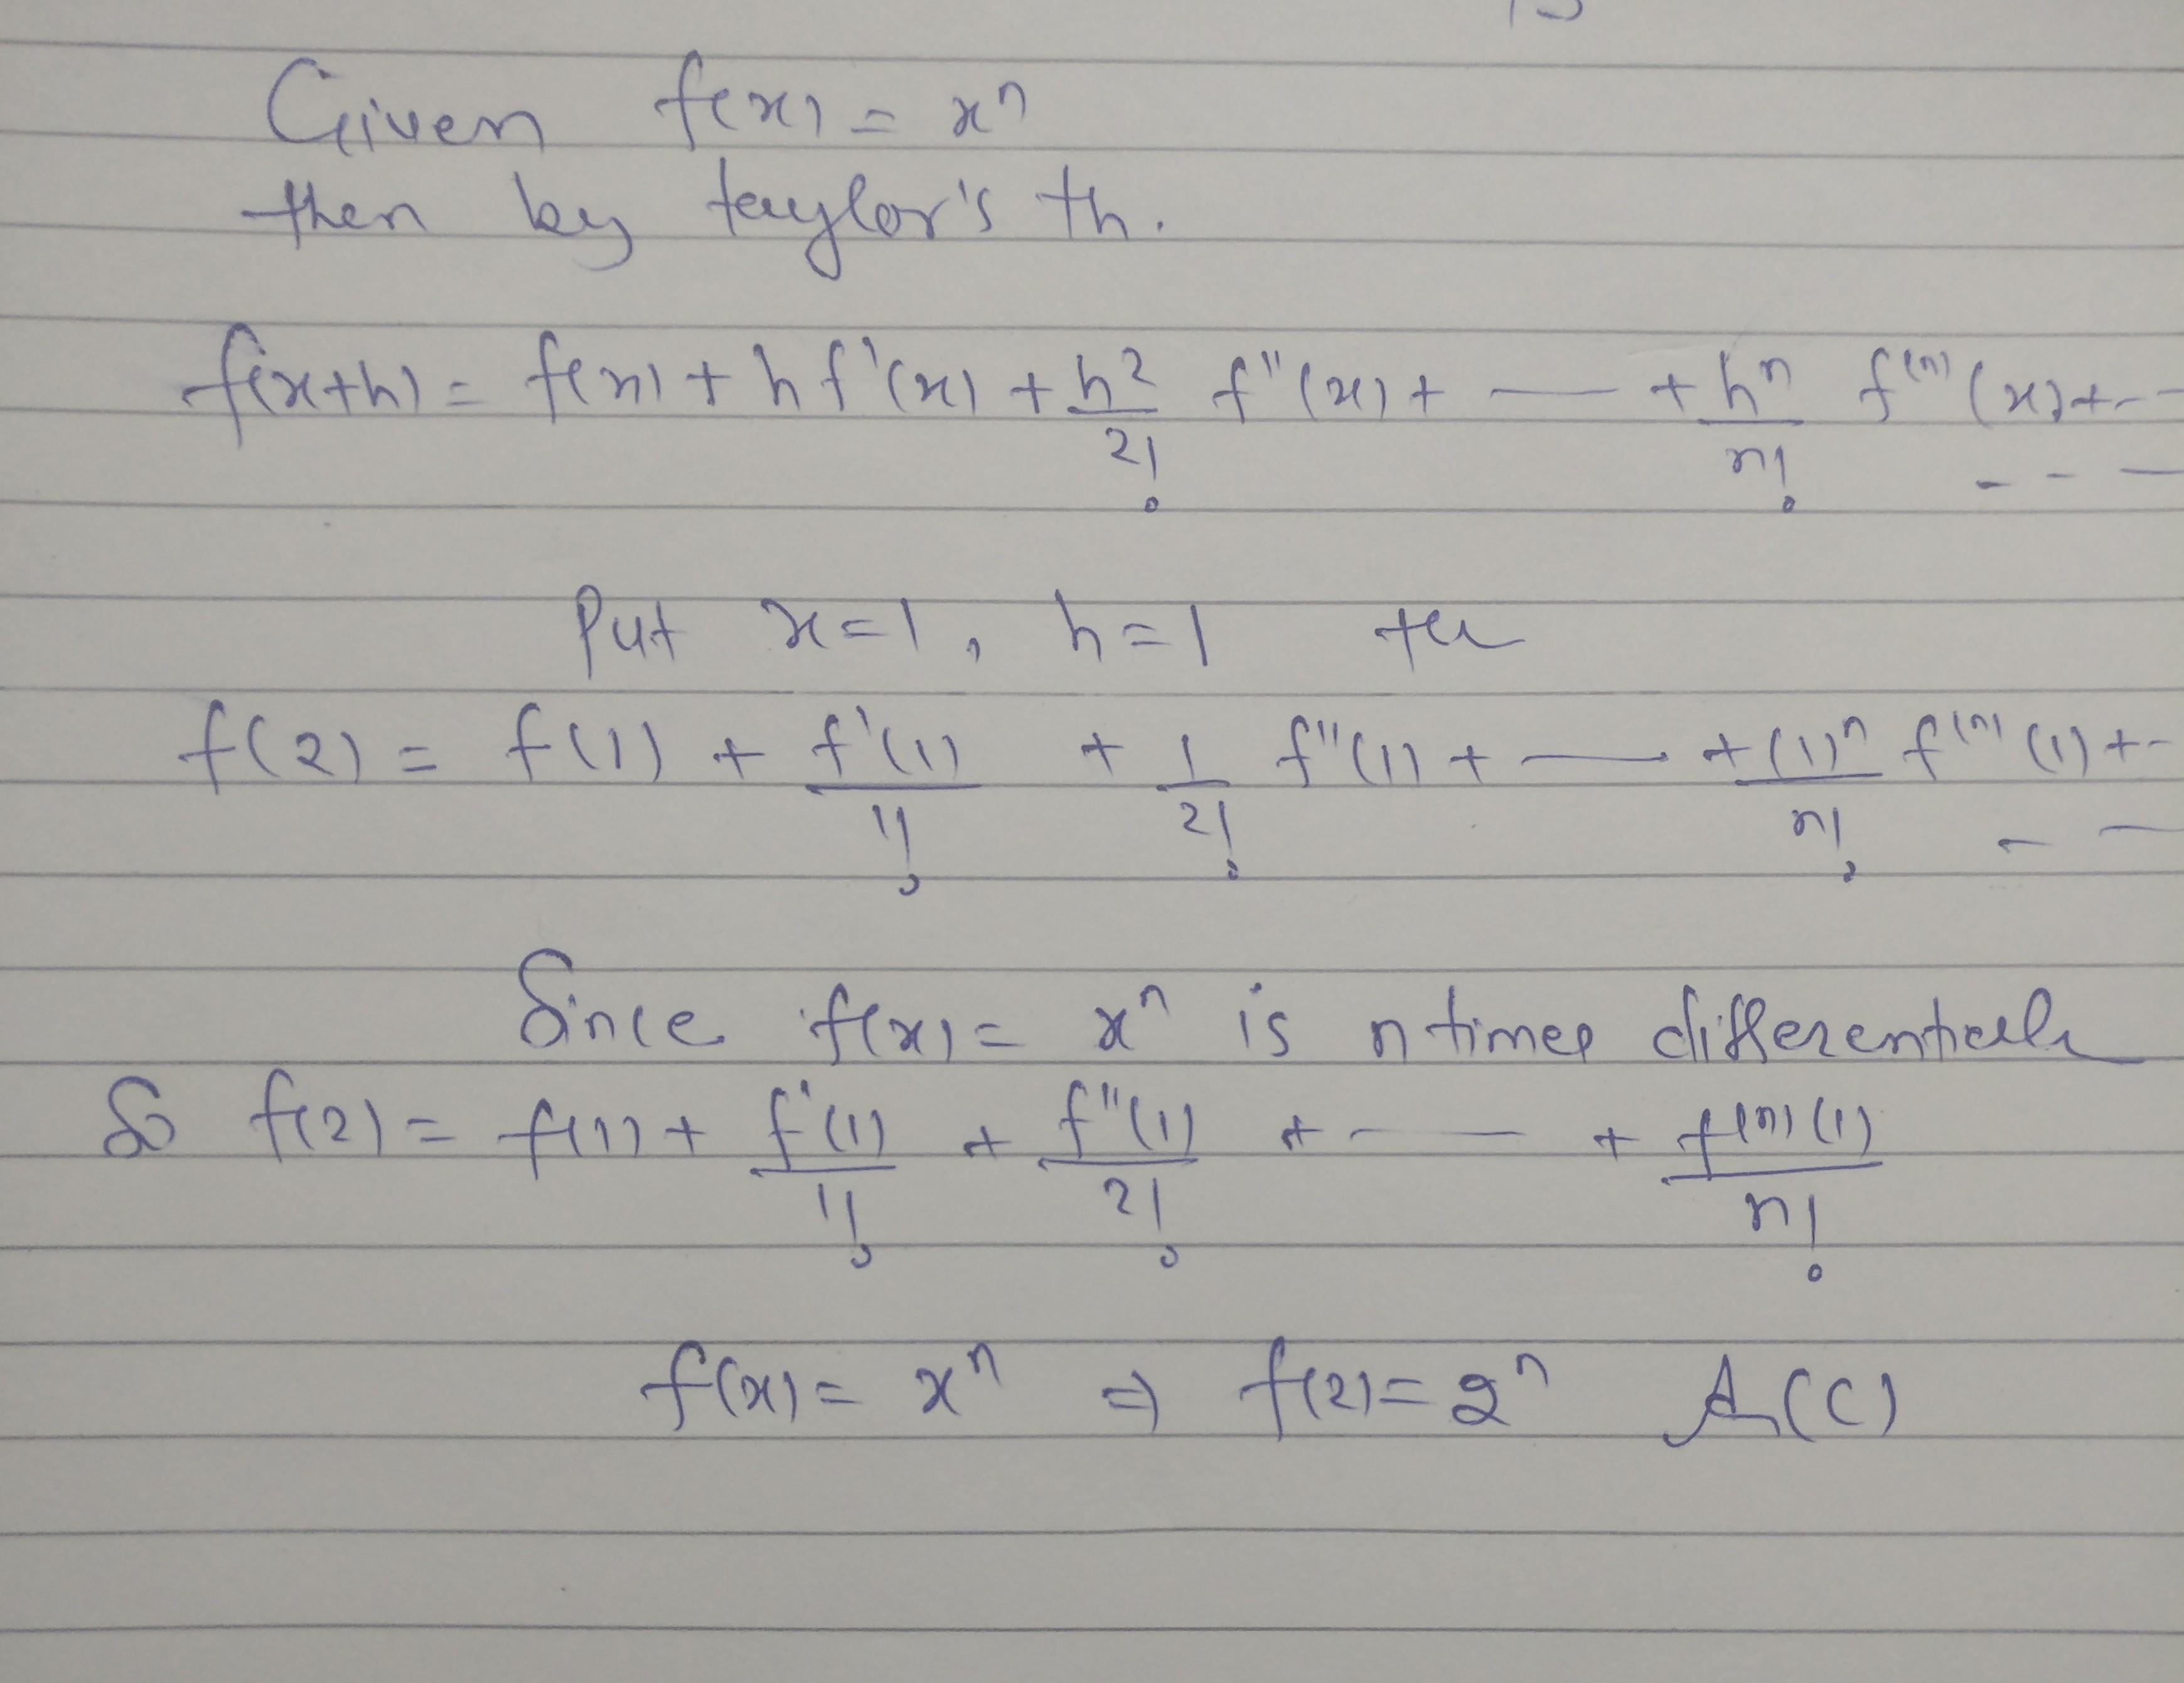 Given f(x) = xⁿ
then by taylor's th.
f(x+h) = f(x) + h f'(x) + h²/2! f''(x) + — + hⁿ/n! f⁽ⁿ⁾(x) + -- - - —
Put x=1, h=1
f(2) = f(1) + f'(1)/1! + 1/2! f''(1) + — + (1)ⁿ/n! f⁽ⁿ⁾(1) + - - —
Since f(x) = xⁿ is n times
So f(2) = f(1) + f'(1)/1! + f''(1)/2! + - — + f⁽ⁿ⁾(1)/n!
f(x) = xⁿ ⇒ f(2) = 2ⁿ (C)